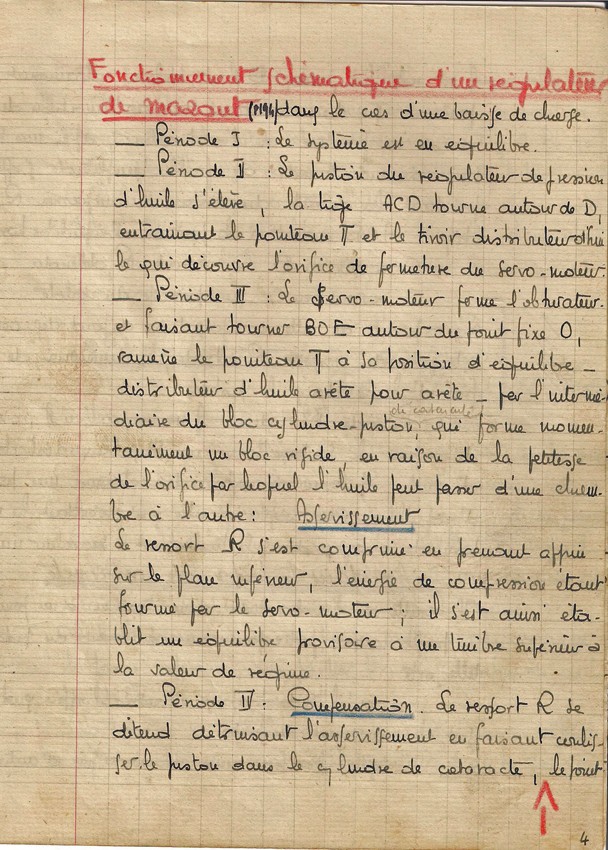 Fonctionnement schématique d'un régulateur
de mazout (P194) dans le cas d'une baisse de charge.
— Période I : Le système est en équilibre.
— Période II : Le piston du régulateur de pression
d'huile s'élève, la tige ACD tourne autour de D,
entraînant le pointeau T et le tiroir distributeur d'hui
le qui découvre l'orifice de fermeture du servo-moteur.
— Période III : Le servo-moteur ferme l'obturateur
et faisant tourner BOE autour du point fixe O,
ramène le pointeau T à sa position d'équilibre —
distributeur d'huile arête pour arête — par l'intermé-
diaire du bloc cylindre-piston, qui forme momen-
de cataracte
tanément un bloc rigide, en raison de la petitesse
de l'orifice par lequel l'huile peut passer d'une cham-
bre à l'autre : Asservissement
Le ressort R s'est comprimé en prenant appui
sur le plan inférieur, l'énergie de compression étant
fournie par le servo-moteur ; il s'est ainsi éta-
blit un équilibre provisoire à un timbre supérieur à
la valeur de régime.
— Période IV : Compensation. Le ressort R se
détend détruisant l'asservissement en faisant coulis-
ser le piston dans le cylindre de cataracte, le point
4